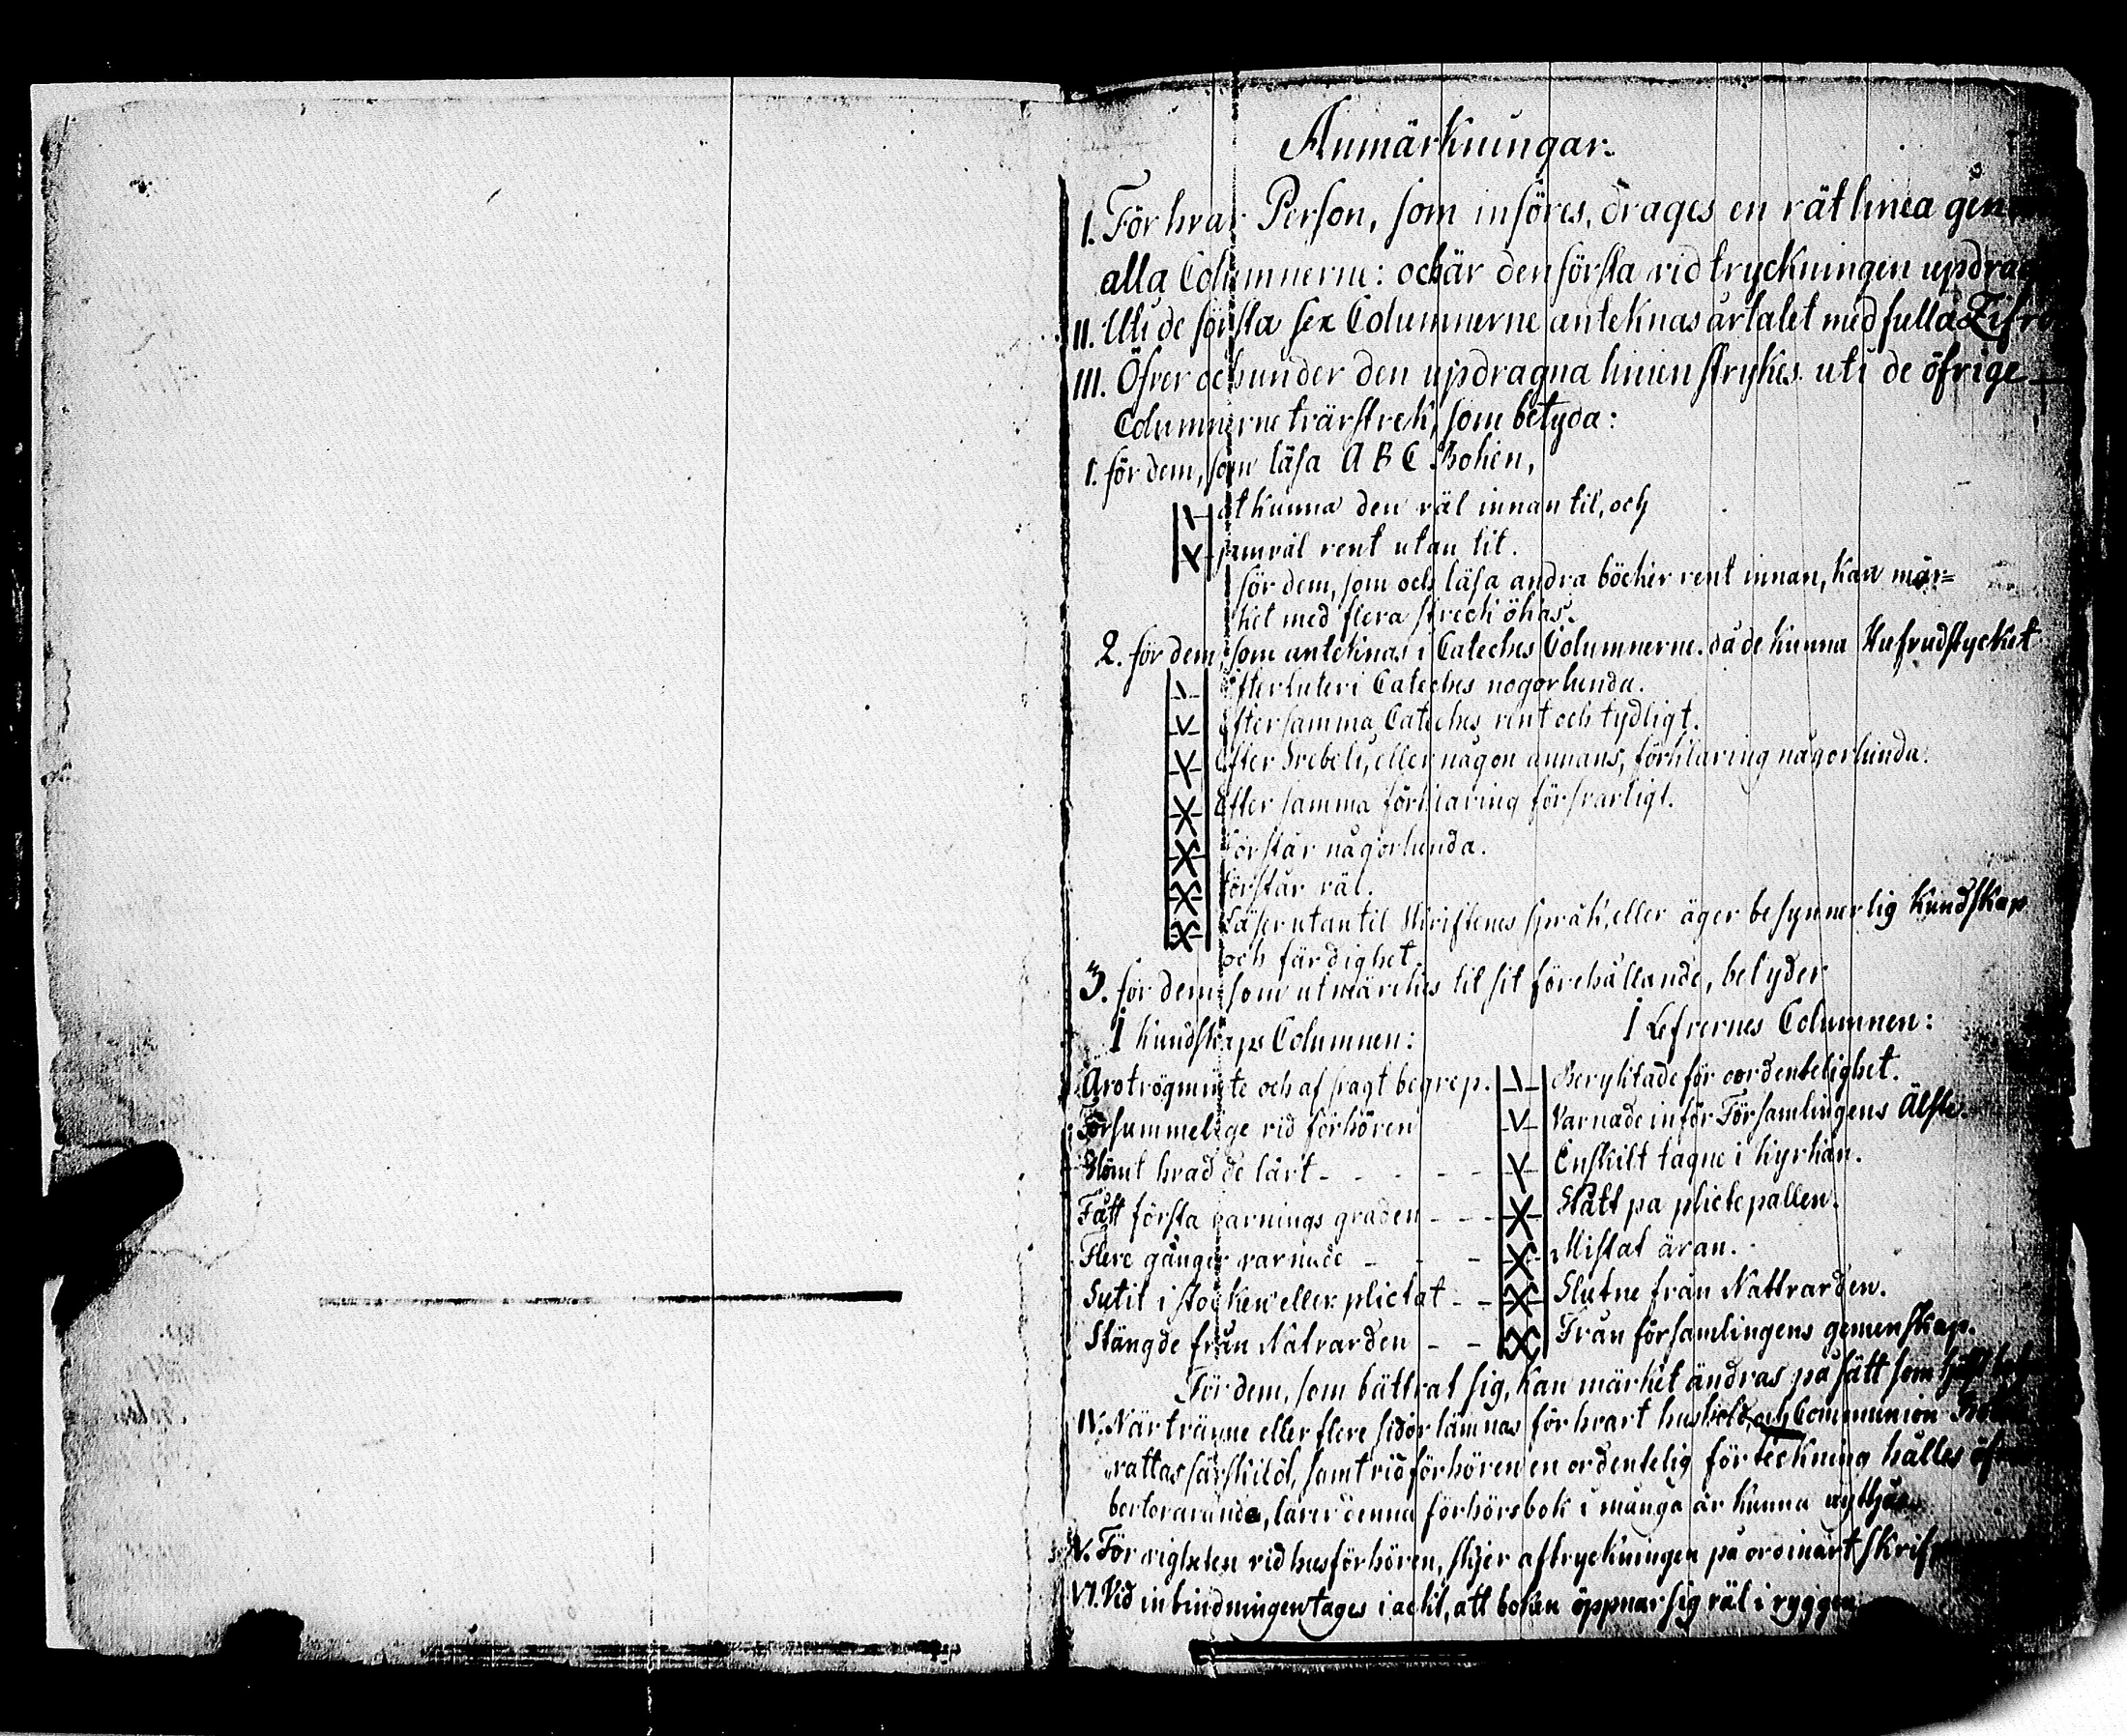 Anmärkningar.
I. För hvar Person, som införes, drages en rät linea gen
alla Columnerne: och är den första vid tryckningen updrag
II. Uti de första sex Columnerne anteknas årtalet med fulla Zifr
III. Öfver och under den updragna linien strykes uti de öfrige
Columnerne tvärstrek, som betyda:
1. för dem, som läsa A B C Boken,
at kunna den väl innan til, och
jämväl rent utan til.
för dem, som och läsa andra böcker rent innan, kan mär=
ket med flera streck ökas.
2. för dem, som anteknas i Cateches Columnerne. då de kunna Hufvudstycket
Efter Luteri Cateches nogorlunda.
Efter samma Cateches rent och tydligt.
Efter Svebeli, eller någon annans, förklaring någorlunda.
Efter samma förklaring försvarligt.
Förstår någorlunda.
Förstår väl.
Läser utan til Skriftenes språk, eller äger besynnerlig kundskap
och färdighet.
3. för dem som utmärckes til sit förehållande, betyder
I kundskaps Columnen:
I Lefvernes Columnen:
Avotrögminte och af svagt begrep. Beryktade för oordentelighet.
Försummelige vid förhören Varnade inför Församlingens Älste.
Glömt hvad de lärt - - - - - Enskilt tagne i kyrkan.
Fått första varnings graden - - - Stått på plictepallen.
Flere gånger varnade - - - Mistat äran.
Sutit i stocken eller plictat - - Slutne från Nattvarden.
Stängde från Natvarden - - Från församlingens gemenskap.
För dem, som bättrat sig, kan märket ändras på sätt som
IV. När tvänne eller flere sidor lämnas för hvart hushold, och Communion Bok
rattas särskildt, samt vid förhören en ordentelig förteckning hålles öf
bortovarande, lärer denna förhörsbok i många år kunna nyttjas
V. För vigheten vid husförhören, skjer aftryckningen på ordinart skrif
VI. Vid inbindningen tages i ackt, att boken öppnar sig väl i ryggen